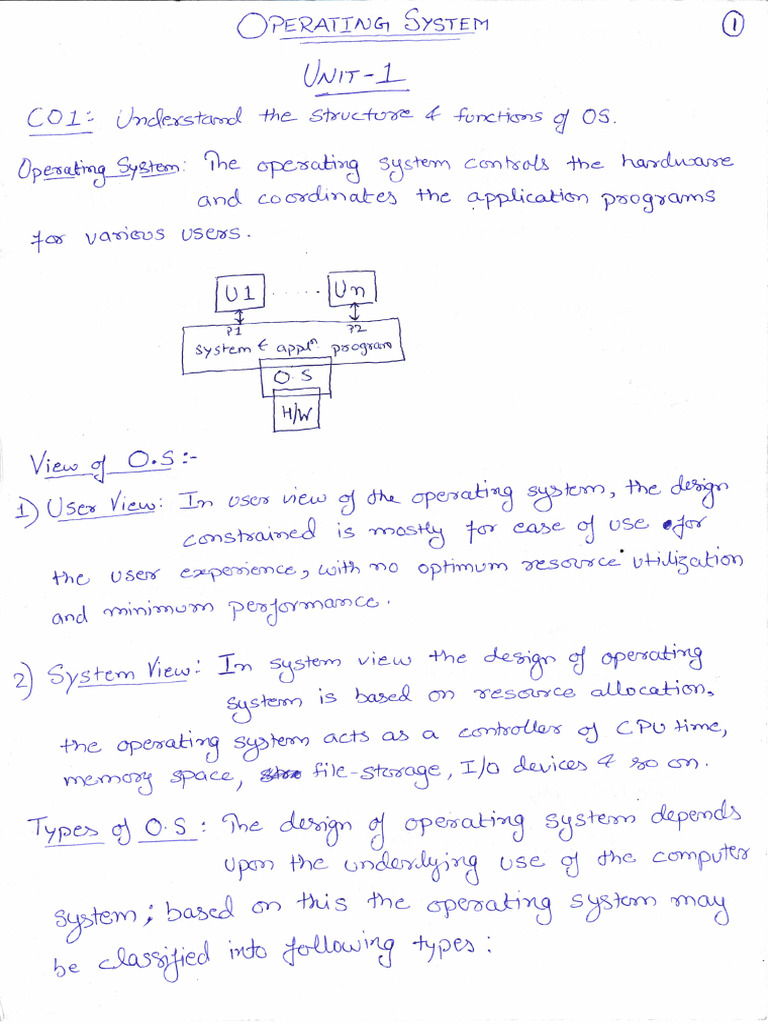 OPERATING SYSTEM
1
UNIT-1
CO1: Understand the structure & functions of OS.
Operating System: The operating system controls the hardware
and coordinates the application programs
for various users.
U1 ...... Un
P1 P2
system & applⁿ program
O.S
H/W
View of O.S:-
1) User View: In user view of the operating system, the design
constrained is mostly for ease of use for
the user experience, with no optimum resource utilization
and minimum performance.
2) System View: In system view the design of operating
system is based on resource allocation,
the operating system acts as a controller of CPU time,
memory space, file-storage, I/O devices & so on.
Types of O.S: The design of operating system depends
upon the underlying use of the computer
system; based on this the operating system may
be classified into following types: